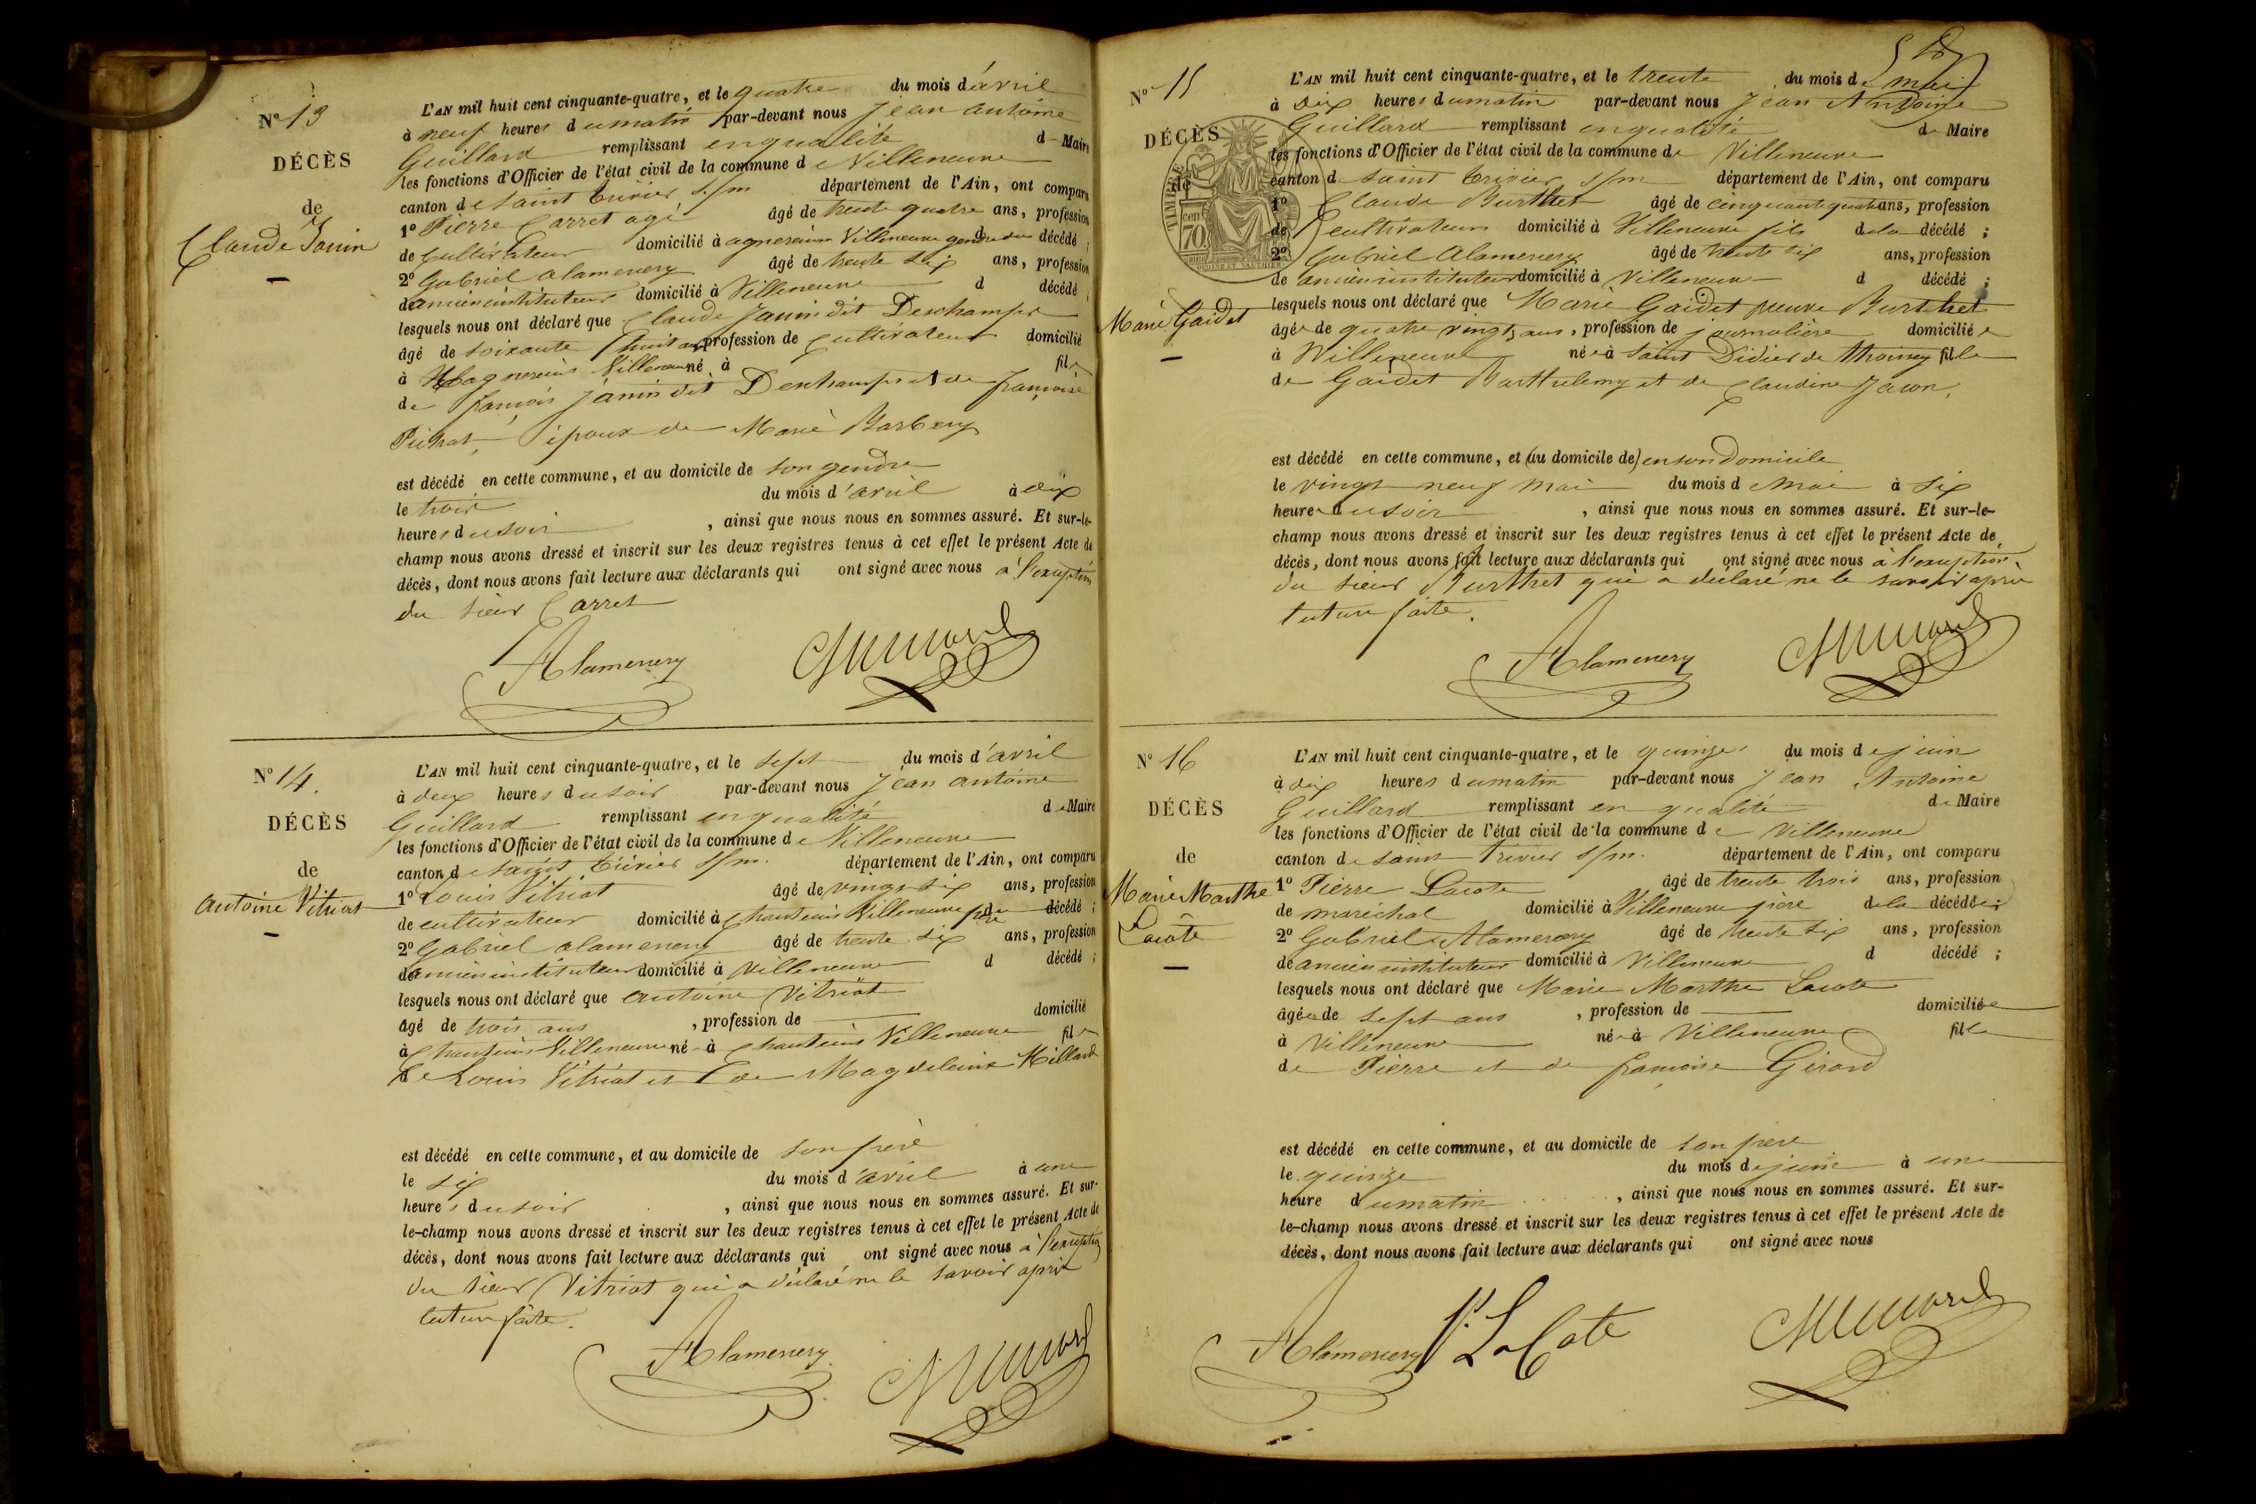 Nº 13
DÉCÈS
de
Claude Janin
L'AN mil huit cent cinquante-quatre, et le quatre du mois d'avril
à neuf heures du matin par-devant nous Jean Antoine
Guillard remplissant en qualité de Maire
les fonctions d'Officier de l'état civil de la commune de Villeneuve
canton de Saint Trivier s/m département de l'Ain, ont comparu
1º Pierre Carret agé âgé de trente quatre ans, profession
de cultivateur domicilié à agnereins Villeneuve gendre du décédé ;
2º Gabriel Alamenery âgé de trente six ans, profession
de ancien instituteur domicilié à Villeneuve d décédé ;
lesquels nous ont déclaré que Claude Janin dit Deschamps
âgé de soixante huit ans, profession de cultivateur domicilié
à agnereins Villeneuve né à fils
de françois Janin dit Deschamps et de françoise
Pichat, époux de Marie Barbery
est décédé en cette commune, et au domicile de son gendre
le trois du mois d'avril à dix
heures du soir , ainsi que nous nous en sommes assuré. Et sur-le-
champ nous avons dressé et inscrit sur les deux registres tenus à cet effet le présent Acte de
décès, dont nous avons fait lecture aux déclarants qui ont signé avec nous à l'exception
du sieur Carret
Alamenery Guillard
Nº 14.
DÉCÈS
de
Antoine Vitriat
L'AN mil huit cent cinquante-quatre, et le sept du mois d'avril
à deux heures du soir par-devant nous Jean Antoine
Guillard remplissant en qualité de Maire
les fonctions d'Officier de l'état civil de la commune de Villeneuve
canton de Saint Trivier s/m. département de l'Ain, ont comparu
1º Louis Vitriat âgé de vingt six ans, profession
de cultivateur domicilié à Chanteins Villeneuve père du décédé ;
2º Gabriel alamenery âgé de trente six ans, profession
de ancien instituteur domicilié à Villeneuve d décédé ;
lesquels nous ont déclaré que Antoine Vitriat
âgé de trois ans , profession de domicilié
à Chanteins Villeneuve né à Chanteins Villeneuve fils
de Louis Vitriat et de Magdeleine Millard
est décédé en cette commune, et au domicile de son père
le six du mois d'avril à une
heures du soir , ainsi que nous nous en sommes assuré. Et sur-
le-champ nous avons dressé et inscrit sur les deux registres tenus à cet effet le présent Acte de
décès, dont nous avons fait lecture aux déclarants qui ont signé avec nous à l'exception
du sieur Vitriat qui a déclaré ne le savoir après
lecture faite.
Alamenery Guillard
Nº 15
DÉCÈS
de
Marie Gaidet
L'AN mil huit cent cinquante-quatre, et le trente du mois de mai
à dix heures du matin par-devant nous Jean Antoine
Guillard remplissant en qualité de Maire
les fonctions d'Officier de l'état civil de la commune de Villeneuve
canton de saint trivier s/m département de l'Ain, ont comparu
1º Claude Burthet âgé de cinquante quatre ans, profession
de cultivateur domicilié à Villeneuve fils de la décédé ;
2º Gabriel Alamenery âgé de trente six ans, profession
de ancien instituteur domicilié à Villeneuve d décédé ;
lesquels nous ont déclaré que Marie Gaidet veuve Burthet
âgée de quatre vingts ans, profession de journalière domiciliée
à Villeneuve née à Saint Didier de Thoissey fille
de Gaidet Barthelemy et de Claudine Jacon,
est décédé en cette commune, et (au domicile de) en son Domicile
le vingt neuf mai du mois de mai à six
heures du soir , ainsi que nous nous en sommes assuré. Et sur-le-
champ nous avons dressé et inscrit sur les deux registres tenus à cet effet le présent Acte de
décès, dont nous avons fait lecture aux déclarants qui ont signé avec nous à l'exception
du sieur Burthet qui a déclaré ne le savoir après
lecture faite.
Alamenery Guillard
Nº 16
DÉCÈS
de
Marie Marthe
Lacôte
L'AN mil huit cent cinquante-quatre, et le quinze du mois de juin
à dix heures du matin par-devant nous Jean Antoine
Guillard remplissant en qualité de Maire
les fonctions d'Officier de l'état civil de la commune de Villeneuve
canton de saint Trivier s/m. département de l'Ain, ont comparu
1º Pierre Lacote âgé de trente trois ans, profession
de maréchal domicilié à Villeneuve père de la décédée ;
2º Gabriel Alamenery âgé de trente six ans, profession
de ancien instituteur domicilié à Villeneuve d décédé ;
lesquels nous ont déclaré que Marie Marthe Lacote
âgée de sept ans , profession de domiciliée
à Villeneuve née à Villeneuve fille
de Pierre et de françoise Girard
est décédé en cette commune, et au domicile de son père
le quinze du mois de juin à une
heure du matin , ainsi que nous nous en sommes assuré. Et sur-
le-champ nous avons dressé et inscrit sur les deux registres tenus à cet effet le présent Acte de
décès, dont nous avons fait lecture aux déclarants qui ont signé avec nous
Alamenery P. LaCote Guillard